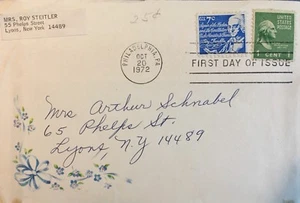 MRS. ROY STEITLER
55 Phelps Street
Lyons, New York 14489
PHILADELPHIA, PA
OCT
20
1972
7¢
1 CENT
FIRST DAY OF ISSUE
Mrs Arthur Schnabel
65 Phelps St.
Lyons, N.Y 14489